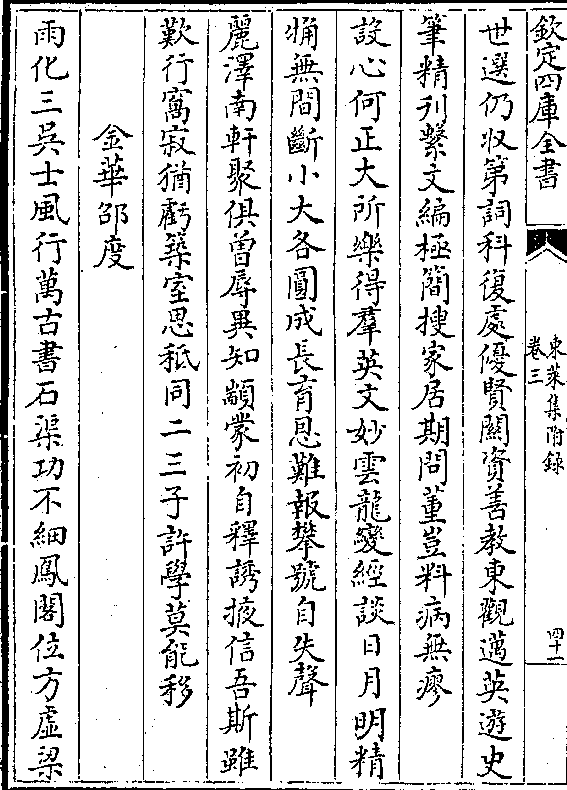 欽定四庫全書
東萊集附錄
卷三
四十一
世選仍收第詞科復處優賢關資善教東觀邁英遊史
筆精刋繫文編極簡搜家居期問董豈料病無瘳
設心何正大所樂得羣英文妙雲龍變經談日月明精
粗無間斷小大各圓成長育恩難報攀號自失聲
麗澤南軒聚俱曽辱異知顓蒙初自釋誘掖信吾斯雖
歎行窩寂猶虧築室思秪同二三子許學莫能移
金華邵度
雨化三吳士風行萬古書石渠功不細鳳閣位方虛梁